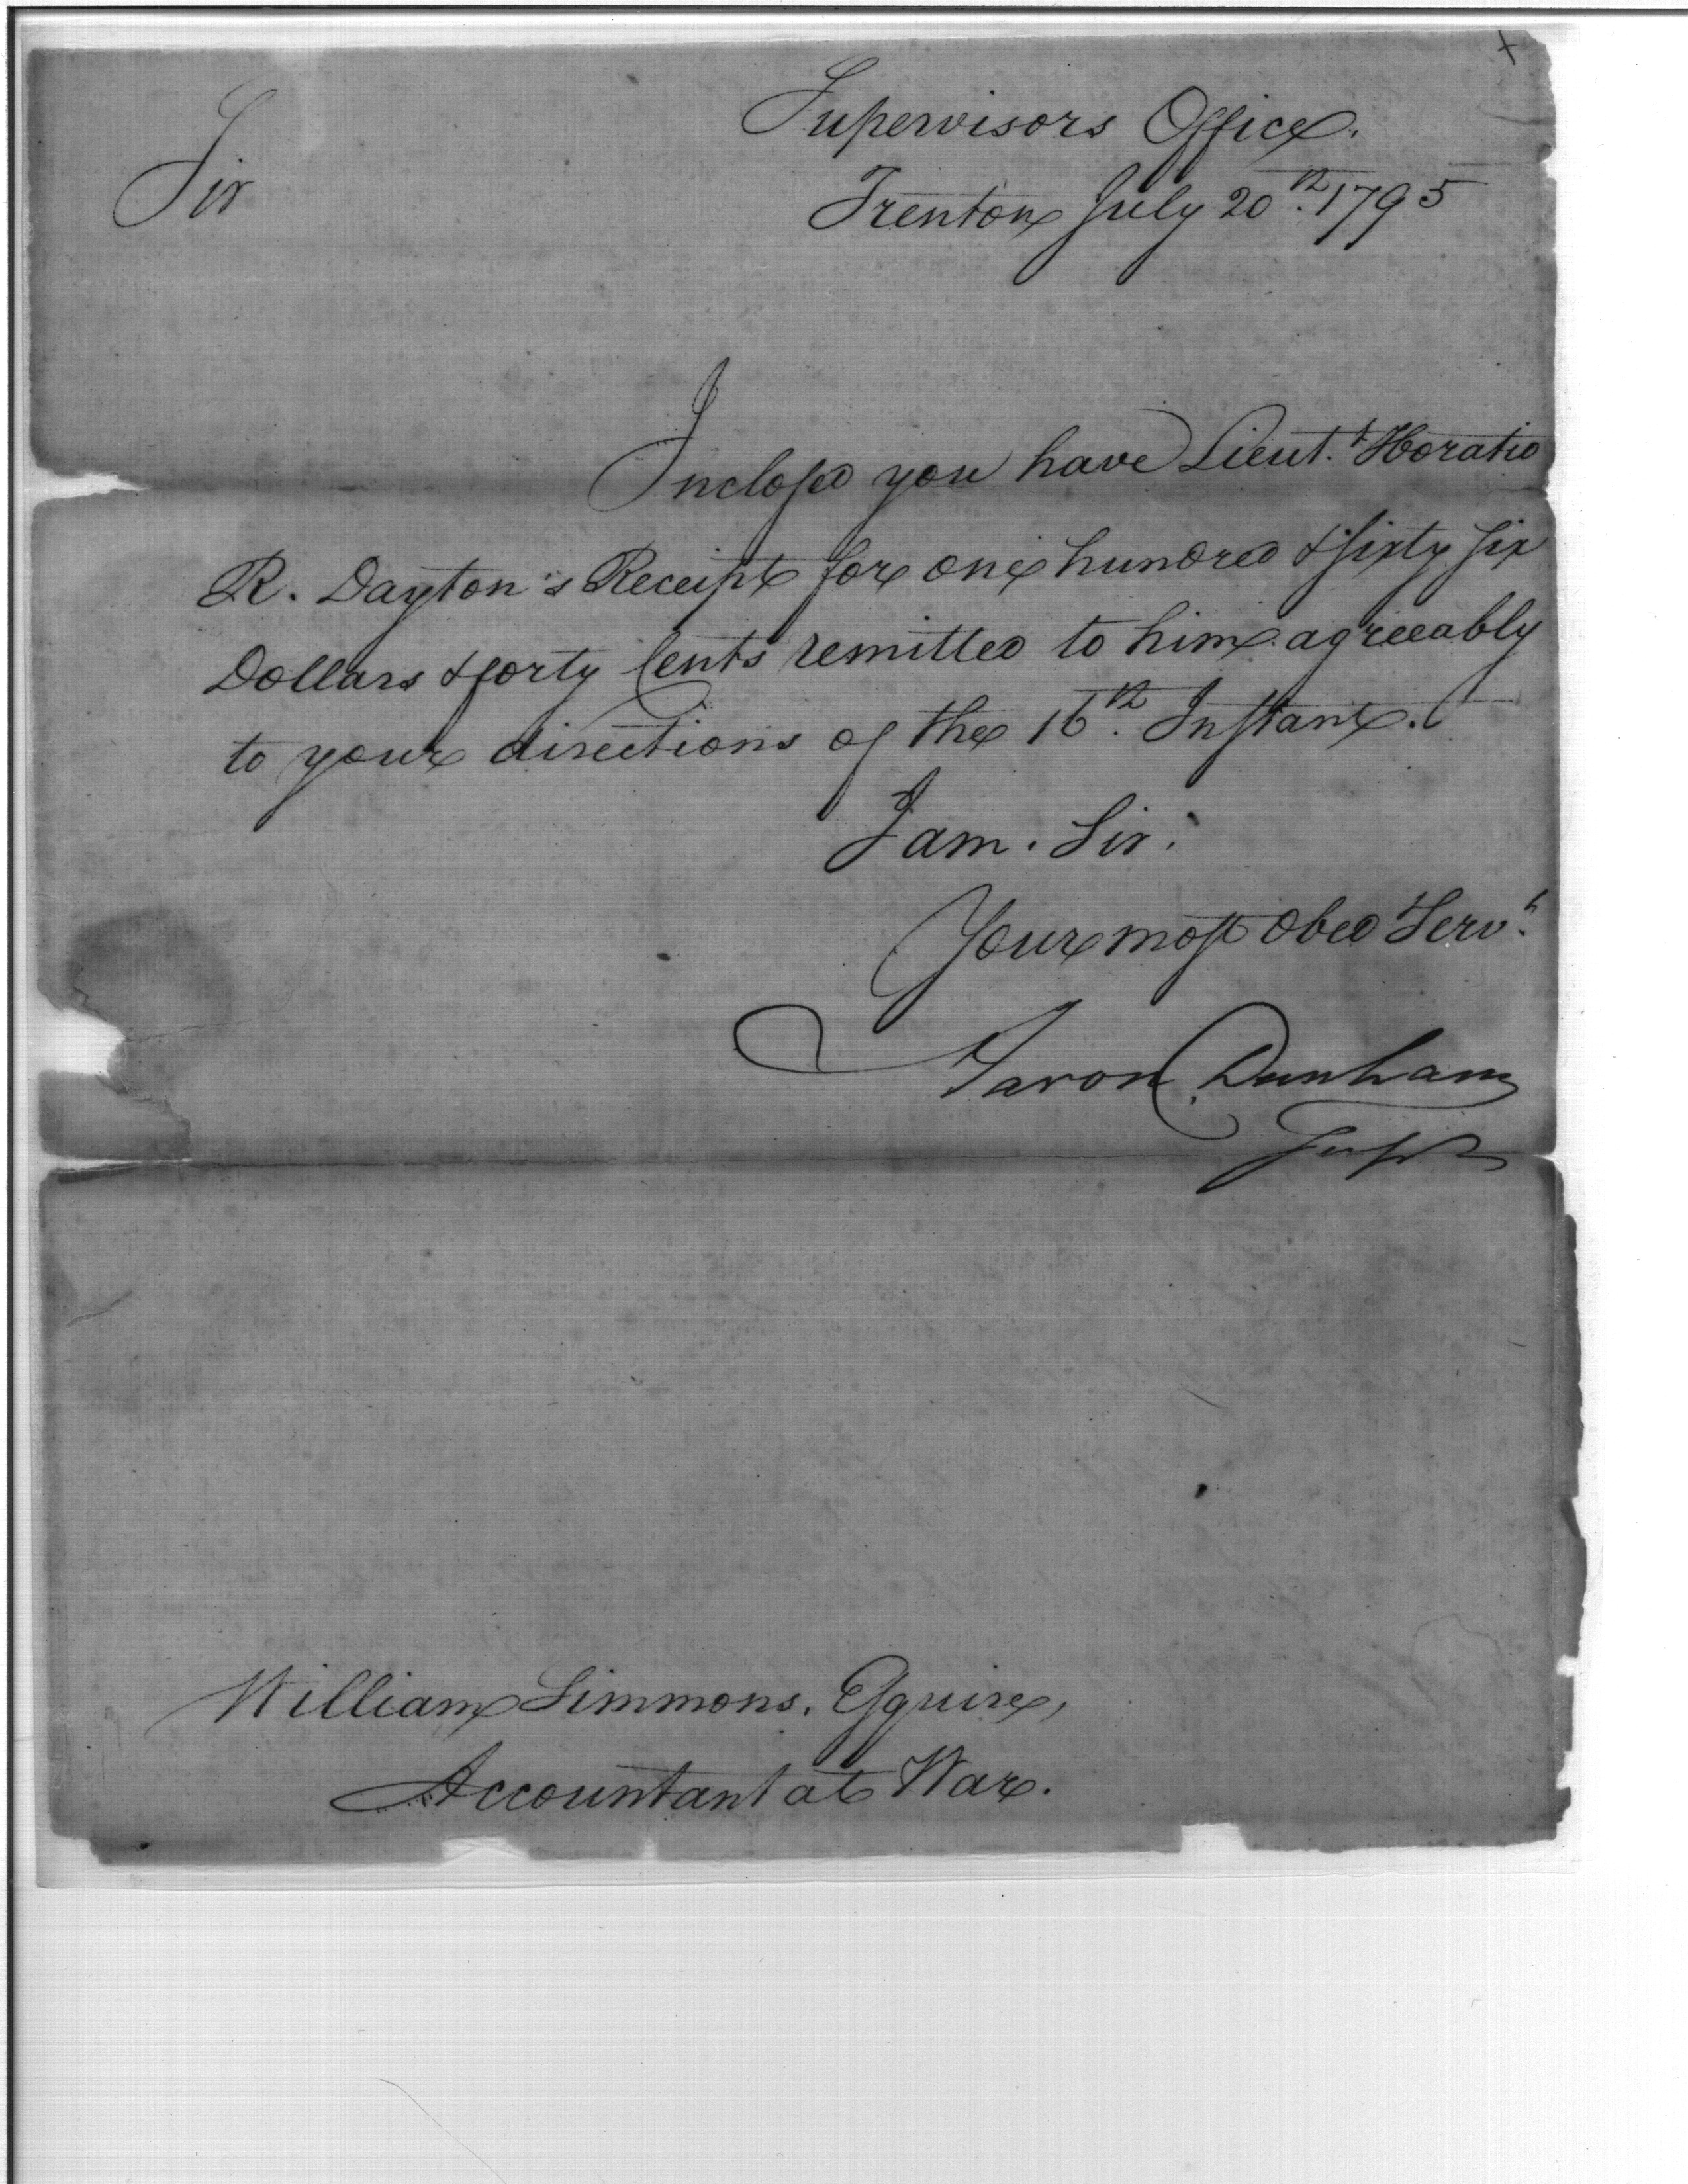 Supervisors Office.
Sir
Trenton July 20th. 1795
Inclosed you have Lieut.t Horatio
R. Dayton's Receipt for one hundred & sixty six
Dollars & forty Cents remitted to him agreeably
to your directions of the 16th. Instant.
I am. Sir.
Your most Obed Servt.
Aaron Dunham
Supr
William Simmons. Esquire,
Accountant at War.